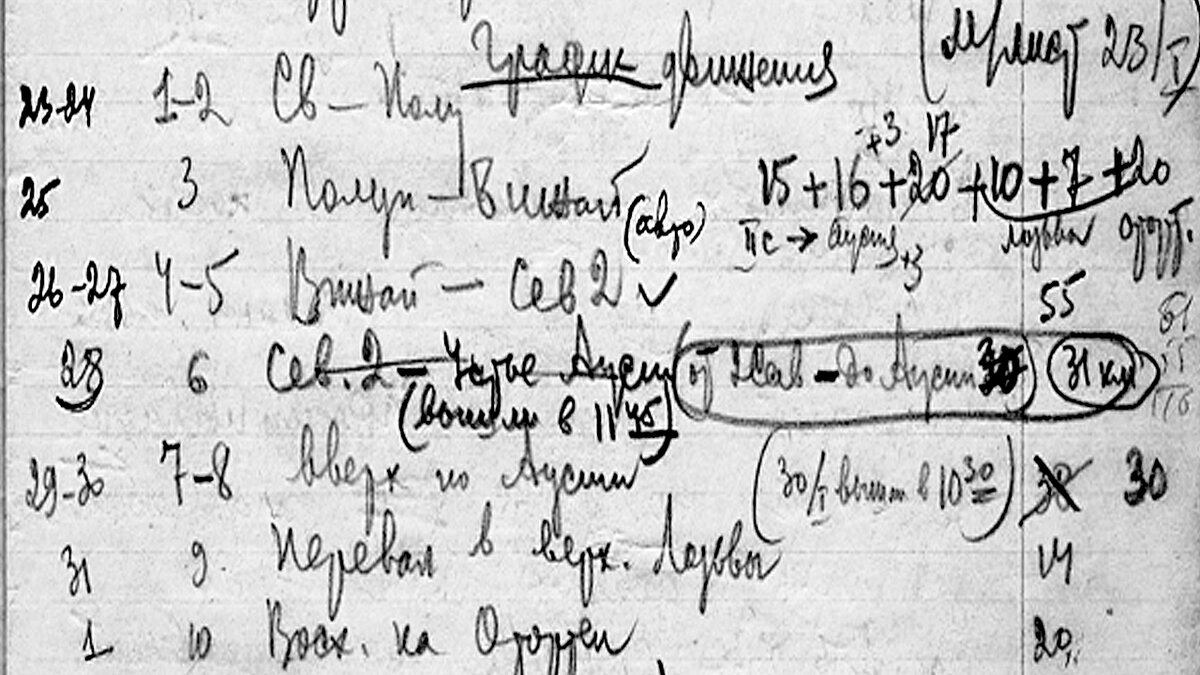 График движения (Мрлист 23/I)
23-24 1-2 Св – Полу
+3 17
25 3 Полун – Вижай (авто) 15+16+20+10+7+20
IIс → Ауспия +3 Лозьва Отрт.
26-27 4-5 Вижай – Сев 2 ✓ 55
28 6 Сев. 2 – Устье Ауспии (от 2Сев – до Ауспии 31 км)
(вышли в 11 45)
29-30 7-8 Вверх по Ауспии (30/I вышли в 10 30) 30 30
31 9 Перевал в верх. Лозьвы 14
1 10 Восх. на Отортен 20